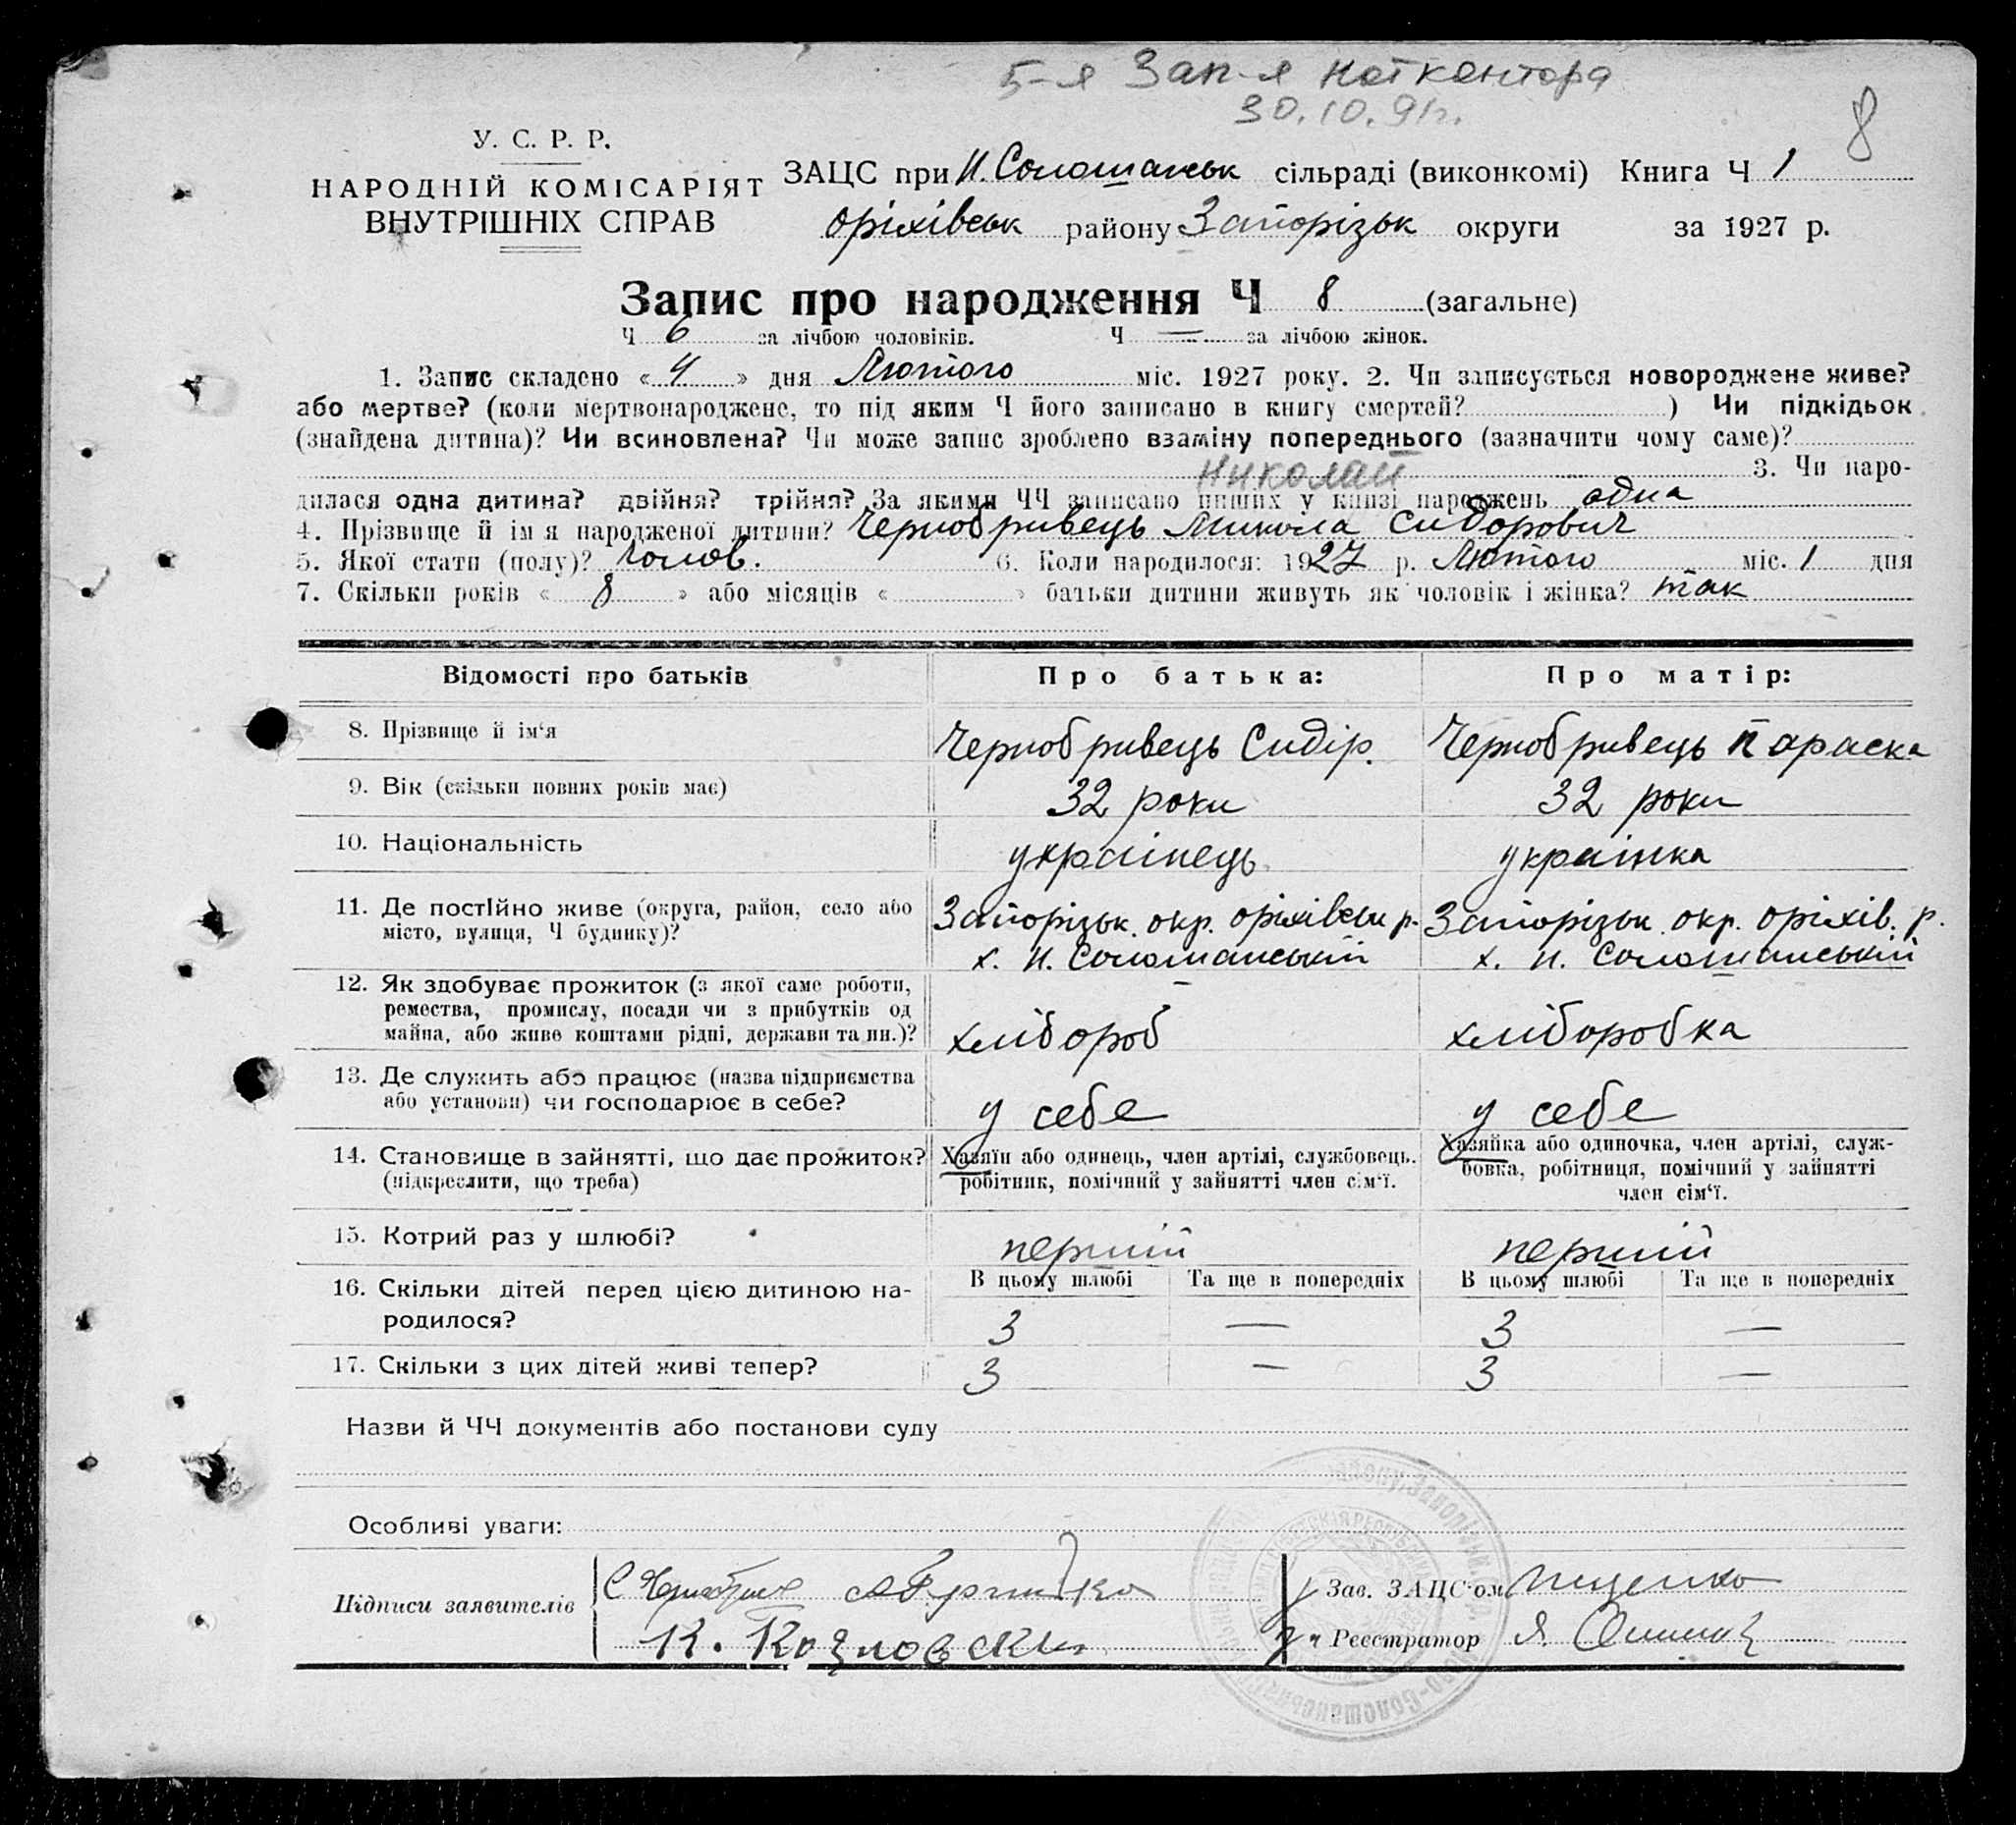 5-я Зап-яноткентора
30.10.91г.
8
У. С. Р. Р.
НАРОДНІЙ КОМІСАРІЯТ
ВНУТРІШНІХ СПРАВ
ЗАЦС при Н. Солошанськ сільраді (виконкомі) Книга Ч 1
Оріхівськ району Запорізьк округи за 1927 р.
Запис про народження Ч 8 (загальне)
Ч 6 за лічбою чоловіків. Ч — за лічбою жінок.
1. Запис складено « 4 » дня Лютого міс. 1927 року. 2. Чи записується новороджене живе?
або мертве? (коли мертвонароджене, то під яким Ч його записано в книгу смертей? ) Чи підкідьок
(знайдена дитина)? Чи всиновлена? Чи може запис зроблено взаміну попереднього (зазначити чому саме)?
Николай 3. Чи наро-
дилася одна дитина? двійня? трійня? За якими ЧЧ записано инших у книзі народжень одна
4. Прізвище й ім'я народженої дитини? Чернобривець Микола Сидорович
5. Якої стати (полу)? чолов. 6. Коли народилося: 1927 р. Лютого міс. 1 дня
7. Скільки років « 8 » або місяців « » батьки дитини живуть як чоловік і жінка? так
Відомості про батьків Про батька: Про матір:
8. Прізвище й ім'я Чернобривець Сидір. Чернобривець Параска
9. Вік (скільки повних років має) 32 роки 32 роки
10. Національність українець українка
11. Де постійно живе (округа, район, село або Запорізьк. окр. оріхівськ р. Запорізьк. окр. оріхів. р.
місто, вулиця, Ч будинку)? х. Н. Солошанський х. Н. Солошанський
12. Як здобуває прожиток (з якої саме роботи,
ремества, промислу, посади чи з прибутків од
майна, або живе коштами рідні, держави та ин.)? хлібороб хліборобка
13. Де служить або працює (назва підприємства
або установи) чи господарює в себе? у себе у себе
14. Становище в зайнятті, що дає прожиток? Хазяїн або одинець, член артілі, службовець, Хазяйка або одиночка, член артілі, служ-
(підкреслити, що треба) робітник, помічний у зайнятті член сім'ї. бовка, робітниця, помічний у зайнятті
член сім'ї.
15. Котрий раз у шлюбі? перший перший
16. Скільки дітей перед цією дитиною на- В цьому шлюбі Та ще в попередніх В цьому шлюбі Та ще в попередніх
родилося? 3 — 3 —
17. Скільки з цих дітей живі тепер? 3 — 3 —
Назви й ЧЧ документів або постанови суду
Особливі уваги:
Підписи заявителів Зав. ЗАЦС'ом Пиценко
К. Козловски Реєстратор Я.